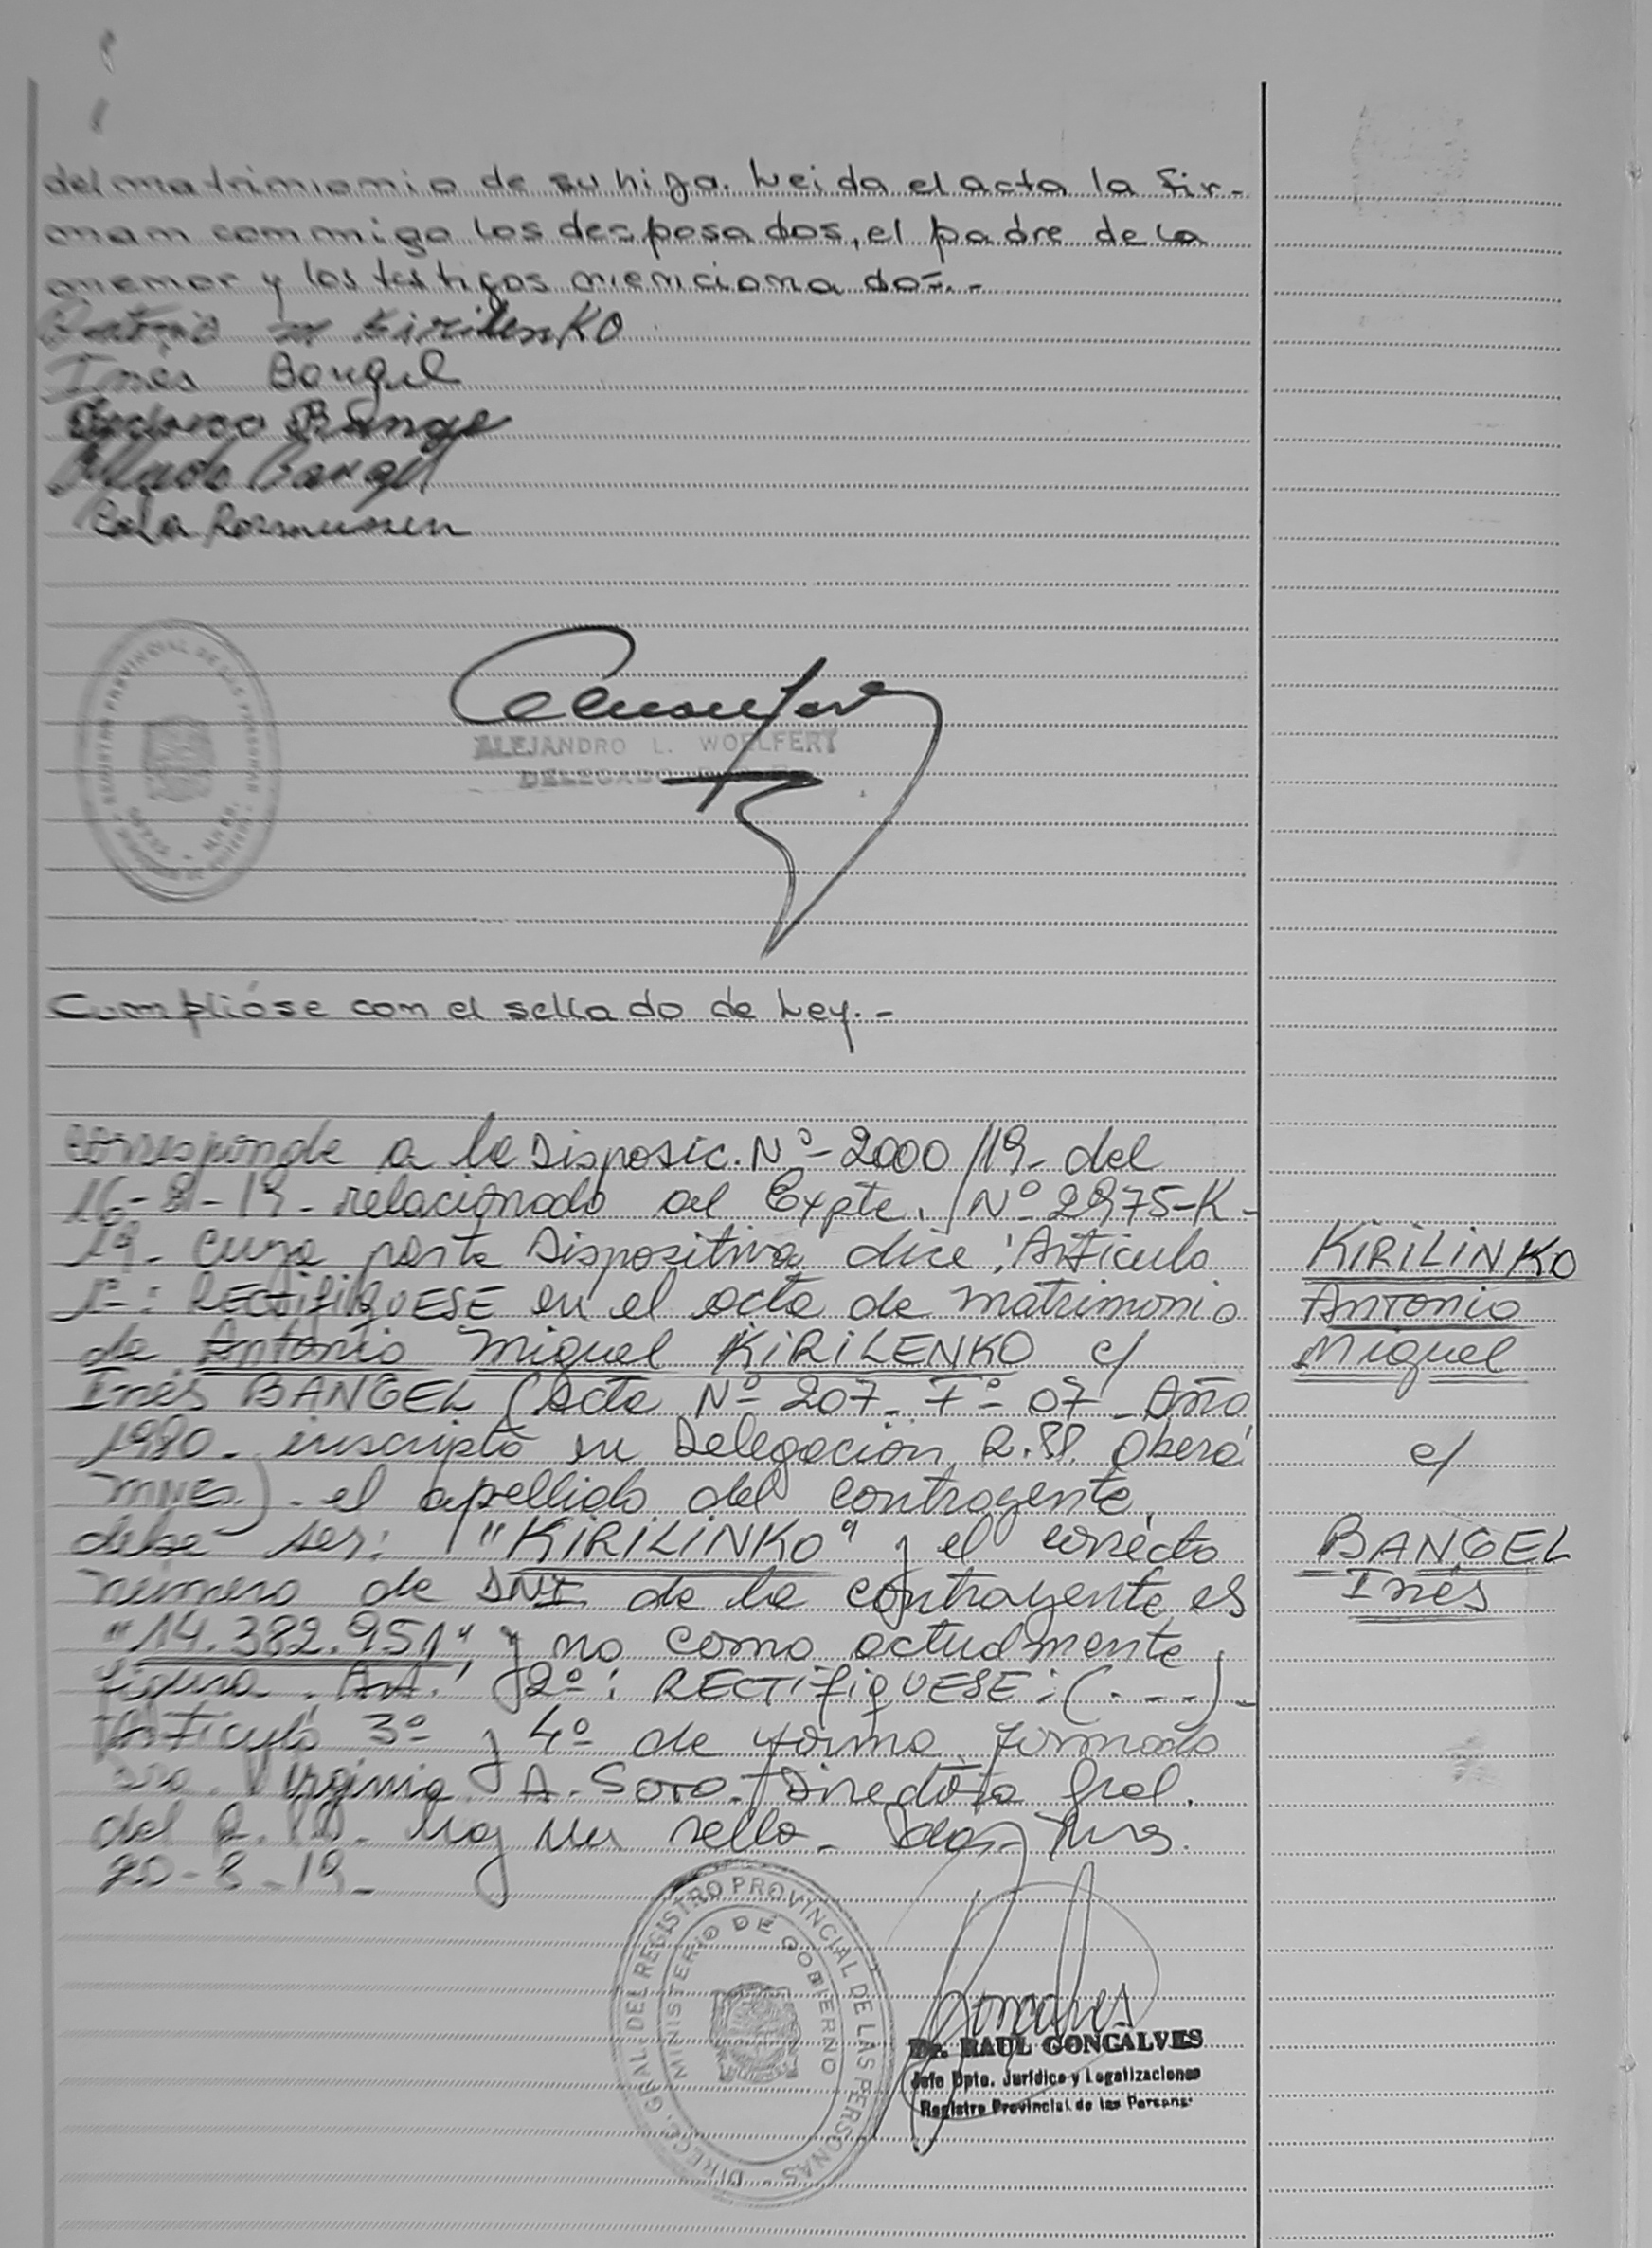 del matrimonio de su hija. Leida el acta la fir-
man conmigo los desposados, el padre de la
menor y los testigos mencionados.-
Antonio M Kirilenko
Inés Bangel
Bangel
Bangel
Rasmussen
REGISTRO PROVINCIAL DE LAS PERSONAS
ALEJANDRO L. WOELFERT
DELEGADO
Cumplióse con el sellado de Ley.-
Corresponde a la Disposic. Nº-2000/19- del
16-8-19- relacionado al Expte. Nº 2975-K-
19- Cuya parte Dispositiva dice: Artículo
1º: RECTIFIQUESE en el acta de matrimonio
de Antonio Miguel KIRILENKO c/
Inés BANGEL (Acta Nº 207- Tº- 07 -Año
1980- inscripto en Delegacion R.PP. Oberá
Mnes.)- el apellido del contrayente
debe ser: "KIRILINKO" y el correcto
número de DNI de la contrayente es
"14.382.951" y no como actualmente
figura. Art. 2º: RECTIFIQUESE: (...)-
Artículo 3º y 4º de forma. Firmado
Dra. Virginia A. Soto- Directora Gral.
del R.PP. Hay un sello- Pdas, Mnes.
20-8-19-
KIRILINKO
Antonio
Miguel
c/
BANGEL
Inés
DIRECC. GRAL. DEL REGISTRO PROVINCIAL DE LAS PERSONAS
MINISTERIO DE GOBIERNO
Goncalves
Dr. RAUL GONCALVES
Jefe Dpto. Jurídico y Legalizaciones
Registro Provincial de las Personas